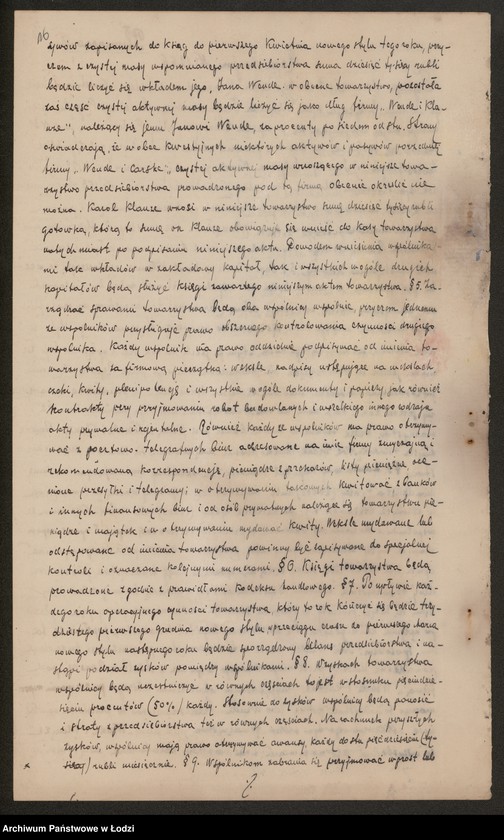 żywów zapisanych do ksiąg do pierwszego kwietnia nowego stylu tego roku, przy-
czem z czystej masy wspomnianego przedsiębiorstwa suma dziesięć tysięcy rubli
będzie liczyć się wkładem jego, Jana Wende, w obecne towarzystwo, pozostała
zaś część czystej aktywnej masy będzie liczyć się jako dług firmy „Wende i Kla-
uze", należący się jemu Janowi Wende, na procenty po siedem od sta. Strony
oświadczają, że wobec kwestyjnych niektórych aktywów i pasywów poprzedniej
firmy „Wende i Zarske", czystej aktywnej masy wnoszącego w niniejsze towa-
rzystwo przedsiębiorstwa prowadzonego pod tą firmą obecnie określić nie
można. Karol Klauze wnosi w niniejsze towarzystwo sumę dziesięć tysięcy rubli
gotówką, którą to sumę on Klauze obowiązuje się wnieść do kasy towarzystwa
natychmiast po podpisaniu niniejszego aktu. Dowodem wniesienia wspólnika-
mi tak wkładów w zakładowy kapitał, tak i wszystkich wogóle drugich
kapitałów będą służyć księgi zawartego niniejszym aktem towarzystwa. § 5. Za-
rządzać sprawami towarzystwa będą oba wspólnicy wspólnie, przyczem jednemu
ze wspólników przysługuje prawo obszernego kontrolowania czynności drugiego
wspólnika. Każdy wspólnik ma prawo oddzielnie podpisywać od imienia to-
warzystwa za firmową pieczątką: weksle, nadpisy ustępujące na wekslach
czeki, kwity, plenipotencje i wszystkie wogóle dokumenty i papiery, jak również
kontrakty przy przyjmowaniu robot budowlanych i wszelkiego innego rodzaju
akty prywatne i rejentalne. Również każdy ze wspólników ma prawo otrzymy-
wać z pocztowo-telegrafnych biur adresowane na imię firmy zwyczajną i
rekomendowaną korrespondencję, pieniądze z przekazów, listy pieniężne ce-
nione przesyłki i telegramy; w otrzymywaniu takowych kwitować z banków
i innych finansowych biur i od osób prywatnych należące się towarzystwu pie-
niądze i majątek i w otrzymywaniu wydawać kwity. Weksle wydawane lub
odstępowane od imienia towarzystwa powinny być zapisywane do specjalnej
kontroli i oznaczane kolejnymi numerami. § 6. Księgi towarzystwa będą
prowadzone zgodnie z prawidłami kodeksu handlowego. § 7. Po upływie każ-
dego roku operacyjnego czynności towarzystwa, który to rok kończyć się będzie trzy-
dziestego pierwszego grudnia nowego stylu w przeciągu czasu do pierwszego marca
nowego stylu następnego roku będzie sporządzony bilans przedsiębiorstwa i na-
stąpi podział zysków pomiędzy wspólnikami. § 8. W zyskach towarzystwa
wspólnicy będą uczestniczyć w równych częściach to jest w stosunku pięćdzie-
sięciu procentów (50%) każdy. Stosownie do zysków wspólnicy będą ponosić
i straty z przedsiębiorstwa też w równych częściach. Na rachunek przyszłych
zysków, wspólnicy mają prawo otrzymywać awansy każdy do stu pięćdziesięciu (ty-
siąc) rubli miesięcznie. § 9. Wspólnikom zabrania się przyjmować wprost lub
Archiwum Państwowe w Łodzi